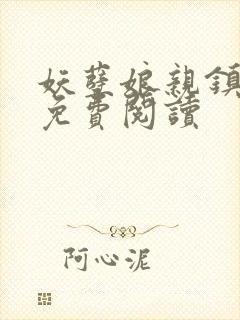 妖孽娘親鎮
免費閱讀
阿心泥